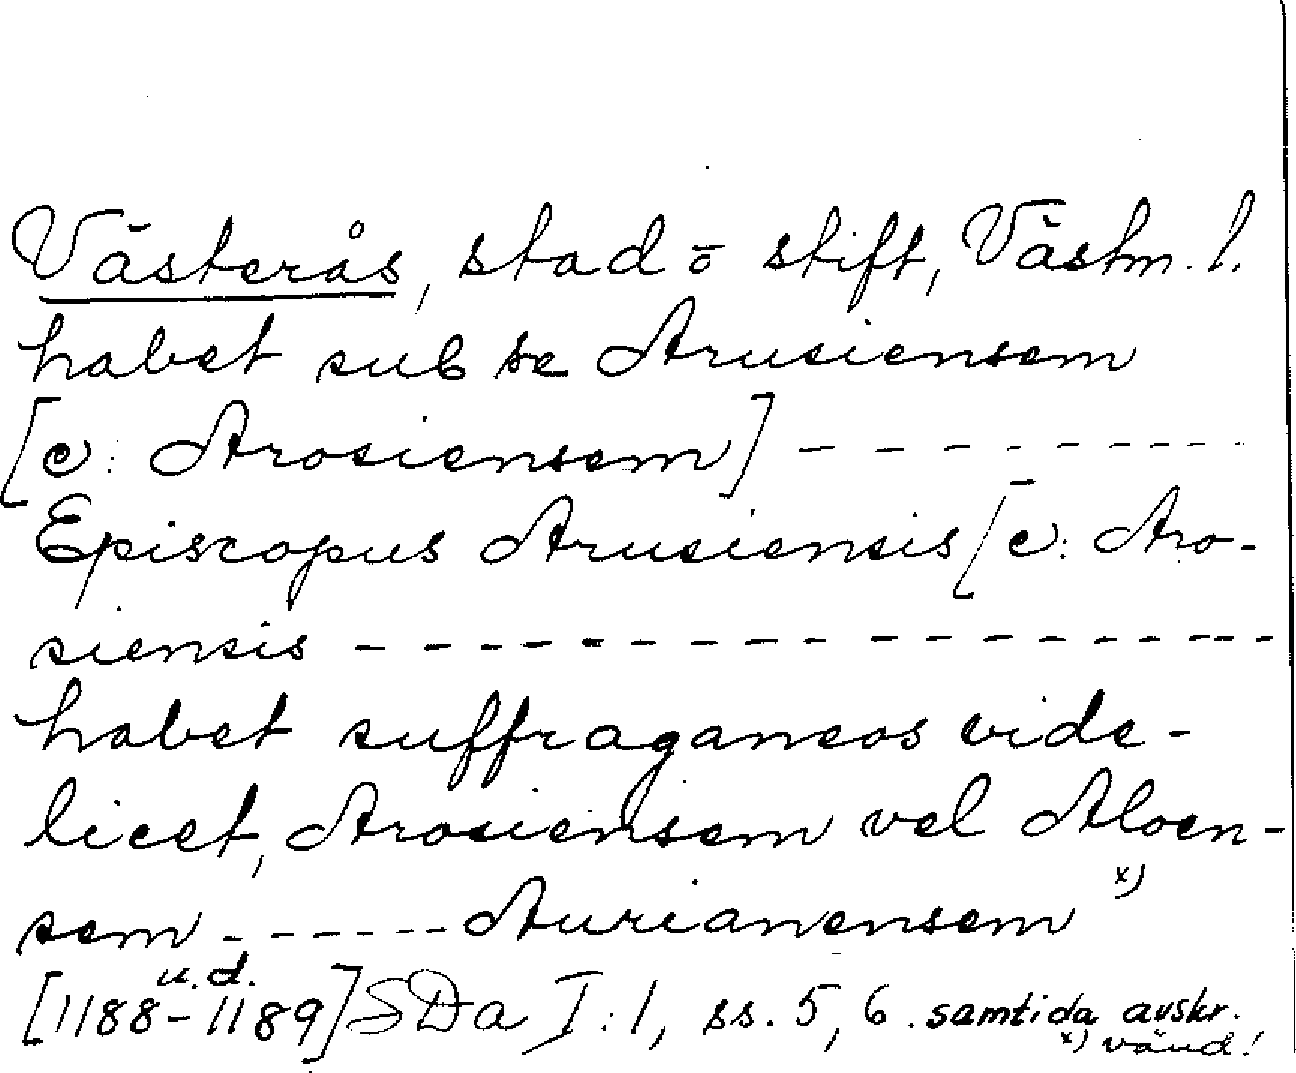 Västerås, stad ō stift, Västm. l.
habet sub se Arusiensem
[c: Arosiensem] - - - - - - - - -
Episcopus Arusiensis [c: Aro-
siensis - - - - - - - - - - - - - - - - -
habet suffraganeos vide-
licet, Arosiensem vel Aloen-
sem - - - - - - Aurianensem x)
u.d.
[1188-1189] SDa I:1, ss. 5, 6. samtida avskr.
x) vänd!